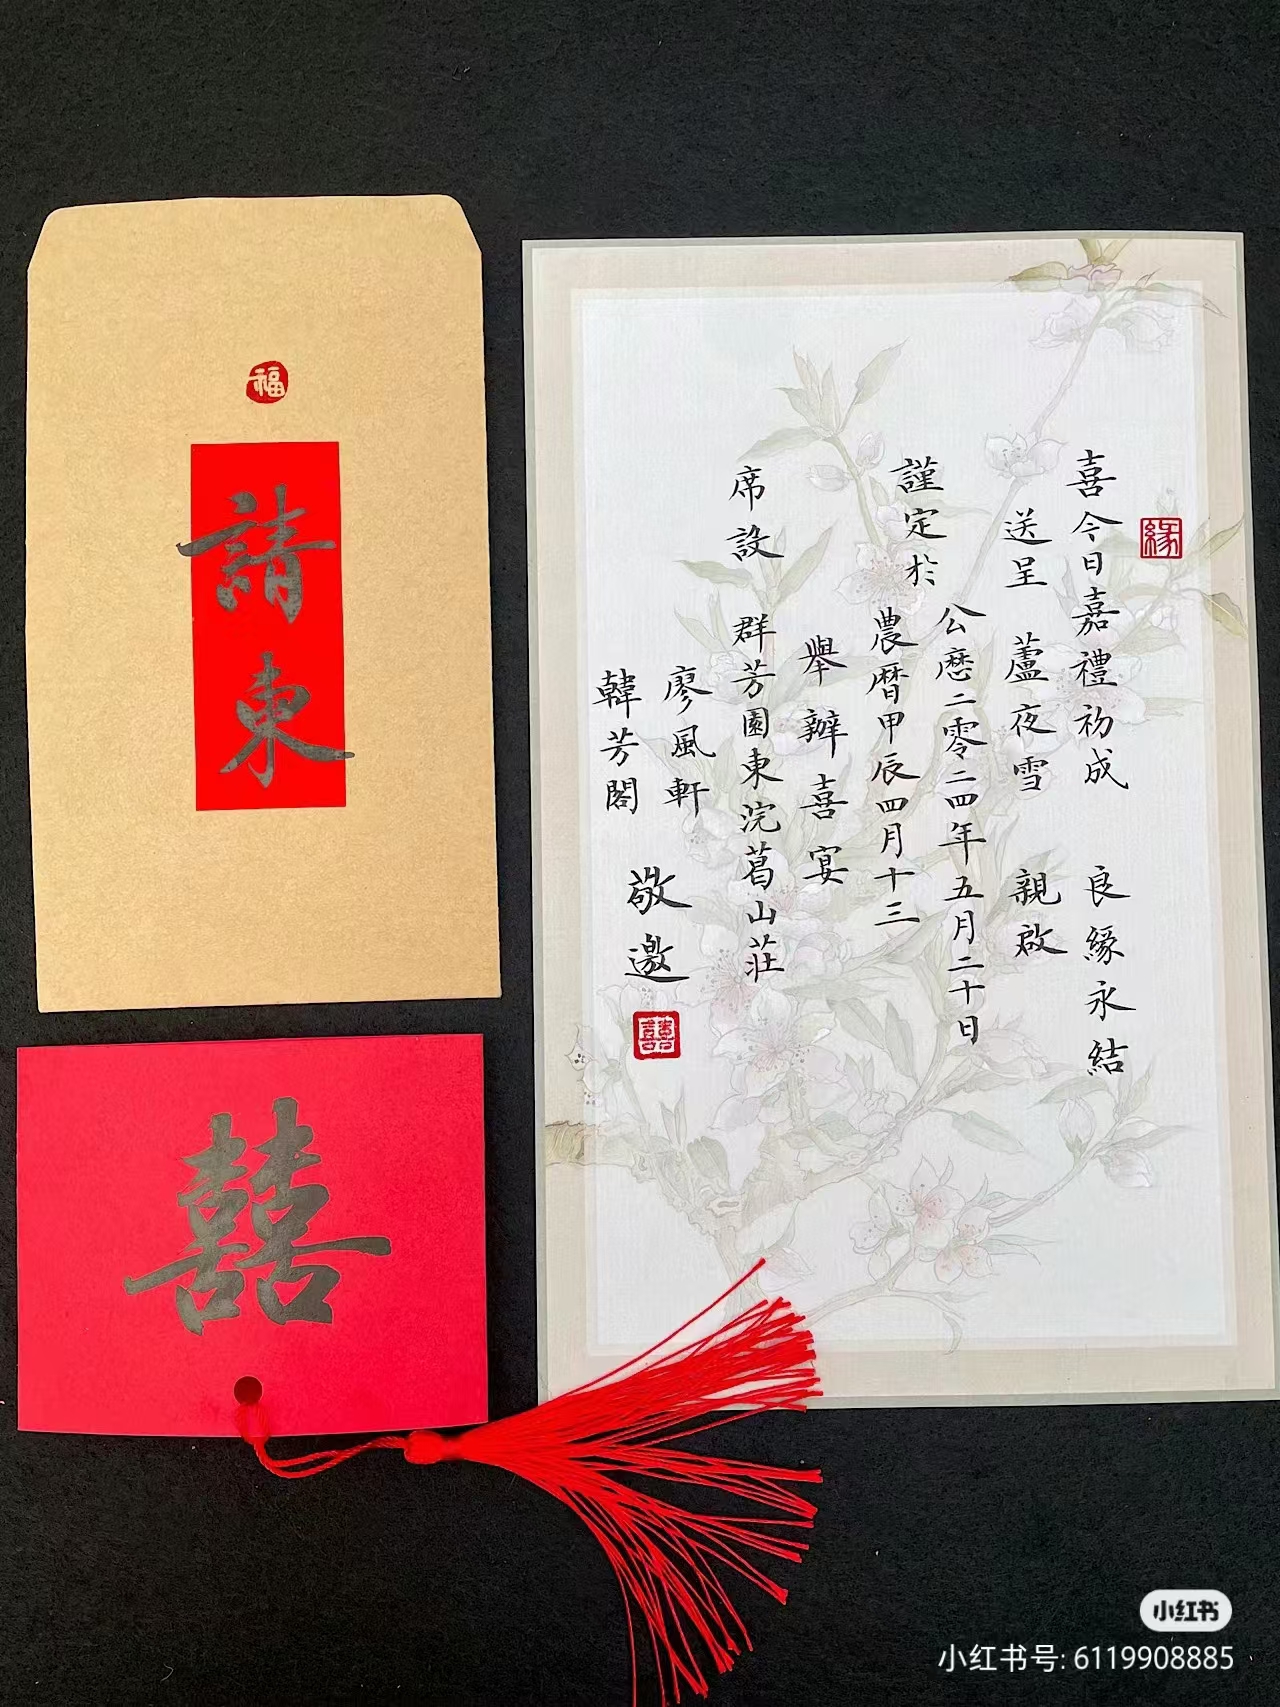 福
請柬
囍
緣
喜今日嘉禮初成 良緣永結
送呈 蘆夜雪 親啟
公曆二零二四年五月二十日
謹定於
農曆甲辰四月十三
舉辦喜宴
席設 群芳園東浣葛山莊
廖風軒
韓芳閣
敬邀
囍
小红书
小红书号: 6119908885